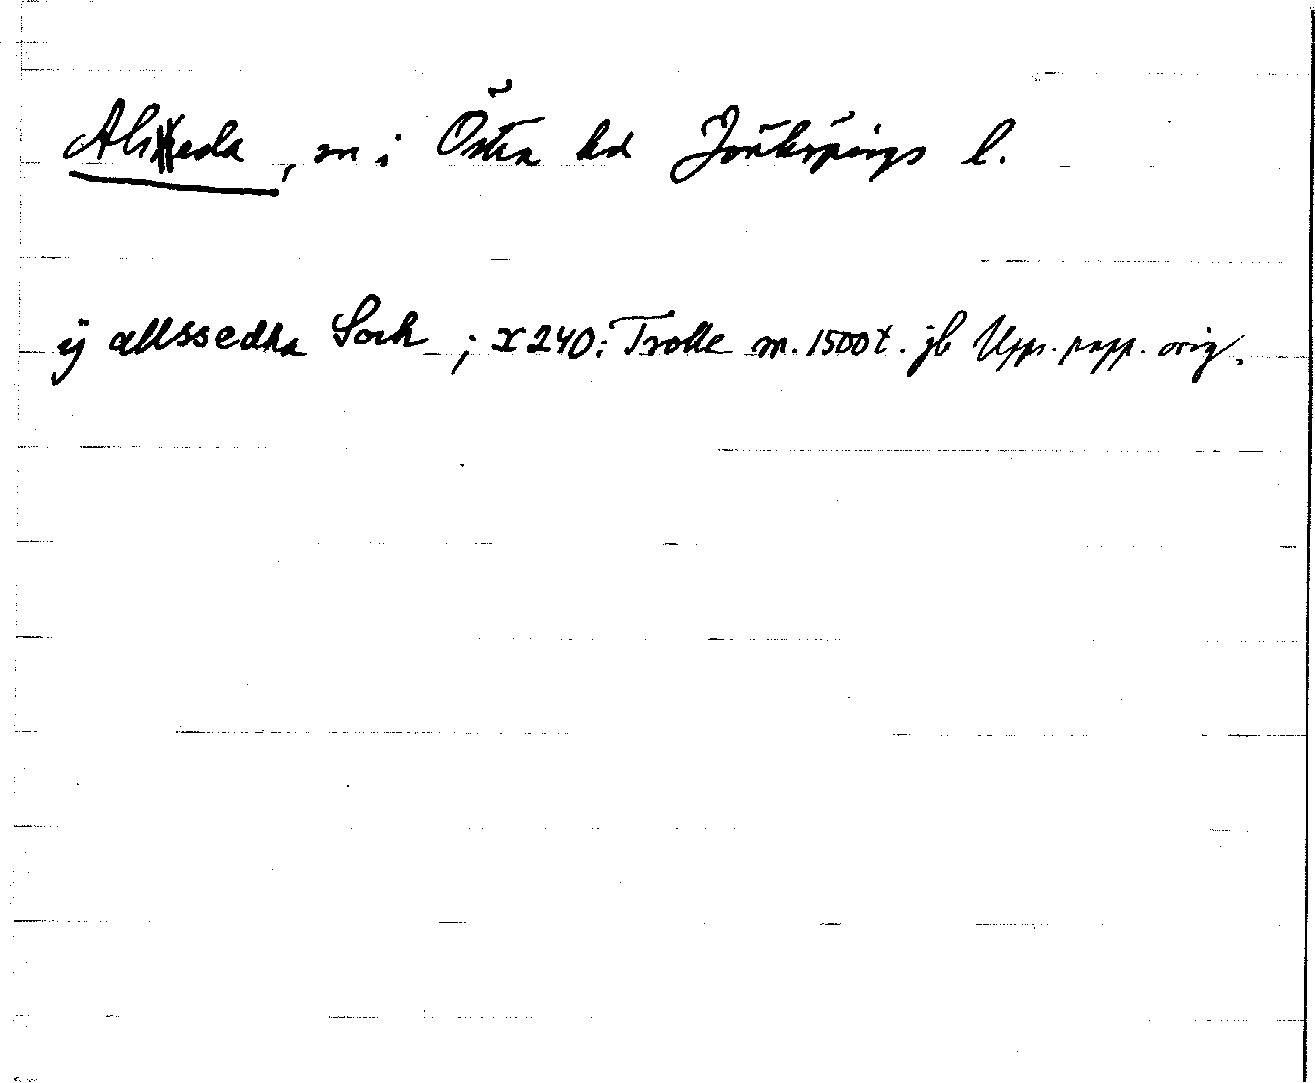 Alseda, sn i Östra hd Jönköpings l.
ÿ allssedha Sock ; x240: Trolle m. 1500 t. jb Upps. papp. orig.